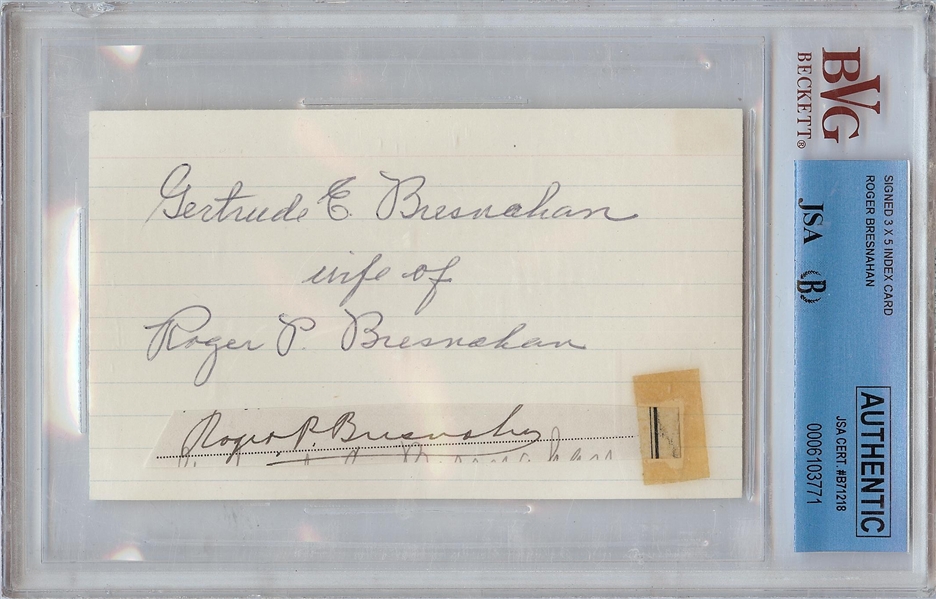 Gertrude E. Bresnahan
wife of
Roger P. Bresnahan
Roger P. Bresnahan
BVG
BECKETT®
SIGNED 3 X 5 INDEX CARD
ROGER BRESNAHAN
JSA (B)
AUTHENTIC
JSA CERT. #B71218
0006103771